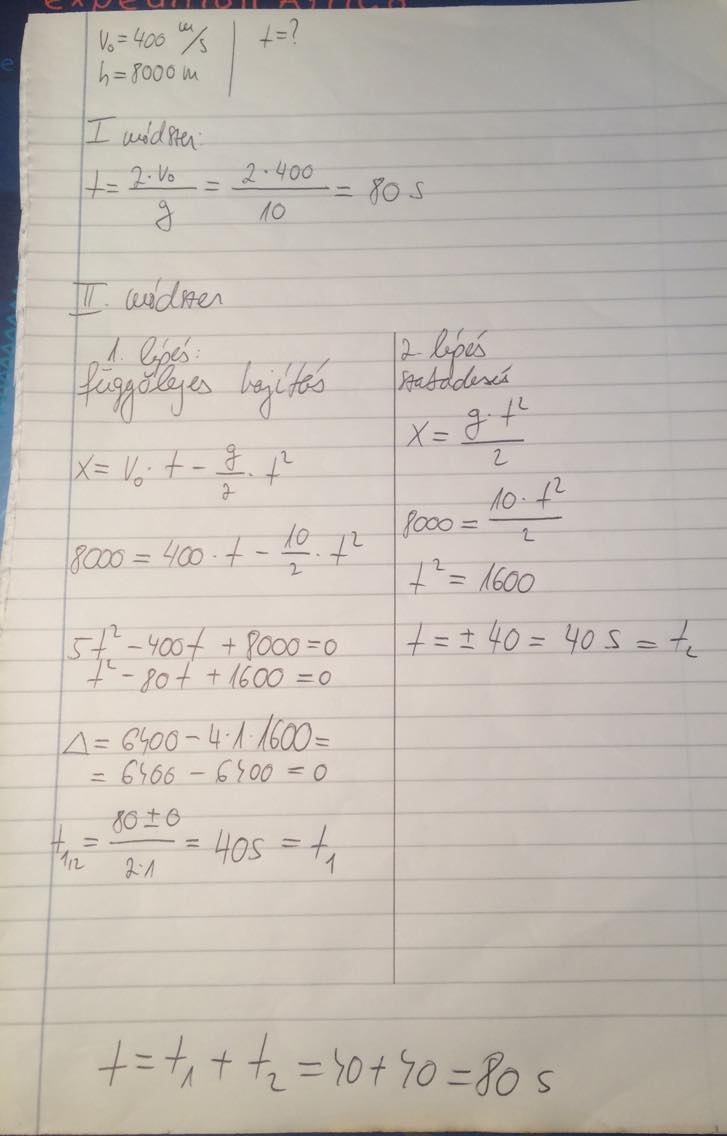 expedition Africa
e
v₀ = 400 m/s | t = ?
h = 8000 m
I módszer:
t = 2·v₀/g = 2·400/10 = 80 s
II. módszer
1. lépés:
függőlejes hajítás
x = v₀·t − g/2·t²
8000 = 400·t − 10/2·t²
5t² − 400t + 8000 = 0
t² − 80t + 1600 = 0
Δ = 6400 − 4·1·1600 =
= 6400 − 6400 = 0
t₁,₂ = 80 ± 0/2·1 = 40s = t₁
2. lépés
szabadesés
x = g·t²/2
8000 = 10·t²/2
t² = 1600
t = ± 40 = 40 s = t₂
t = t₁ + t₂ = 40 + 40 = 80 s